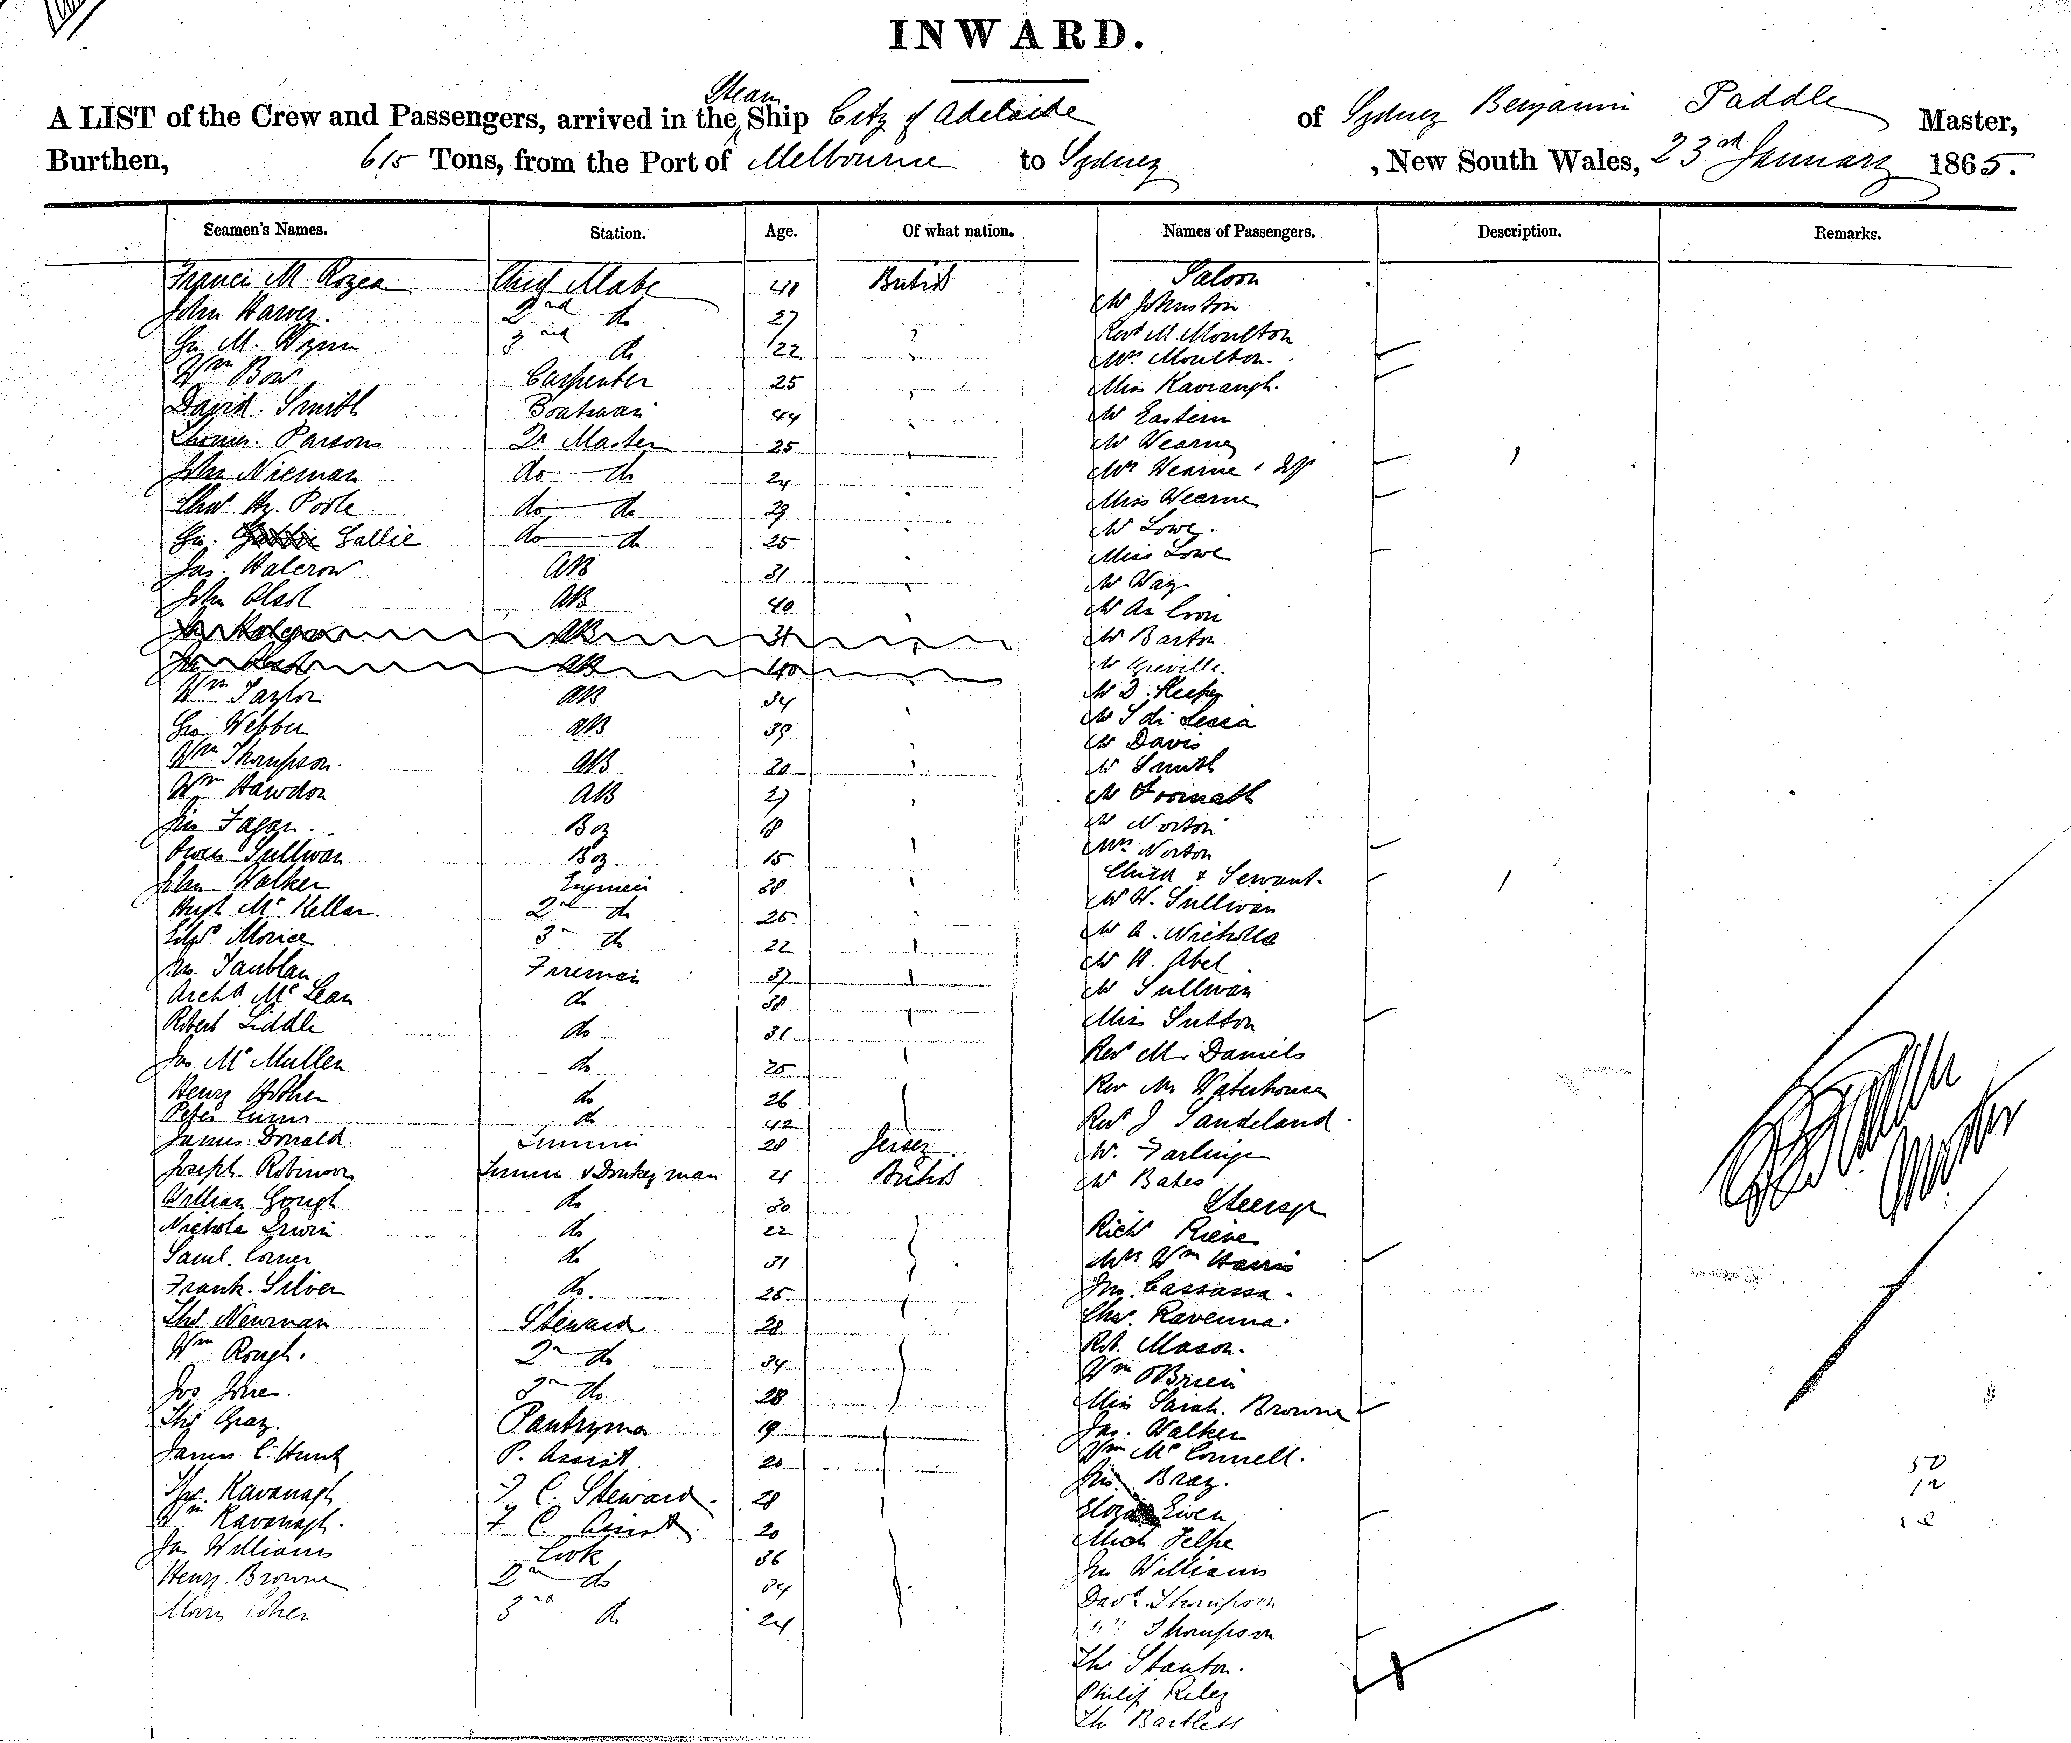 INWARD.
A LIST of the Crew and Passengers, arrived in the Steam Ship City of Adelaide of Sydney Benjamin Paddle Master,
Burthen, 615 Tons, from the Port of Melbourne to Sydney, New South Wales, 23rd January 1865.
Seamen's Names. Station. Age. Of what nation. Names of Passengers. Description. Remarks.
Francis M Rozea Chief Mate 41 British Saloon
John Harvey 2nd do 27 Mr Johnston
M. Wynn 3rd do 22 Revd Mr Moulton
Wm Bow Carpenter 25 Mrs Moulton
David Smith Boatswain 44 Miss Kavanagh
Thomas Parsons Qr Master 25 Mr Eastern
John Nieman do do 24 Mr Wearne
Thos Hy. Poole do do 29 Mrs Wearne
Geo. Gallie do do 25 Miss Wearne
Jas. Halcrow AB 31 Mr Lowe
John Clark AB 40 Miss Lowe
AB 31 Mr Way
AB 40 Mr
Wm Taylor AB 34 Mr Barton
Geo Webber AB 39 Mr Greville
Wm Thompson AB 20 Mr D.
Wm Hawdon AB 27 Mr S di
Jno Fagan Boy 18 Mr Davis
Owen Sullivan Boy 15 Mr Smith
John Walker Engineer 28 Mr
Hugh McKellar 2nd do 25 Mr Norton
Morice 3rd do 22 Mrs Norton
Fireman 37 Child & Servant
Archd McLean do 38 Mr H. Sullivan
Robert Liddle do 31 Mr A. Nicholls
Jas McMullen do 25 Mr H. Abel
Henry do 26 Mr Sullivan
Peter do 42 Miss Sutton
James Donald 28 Jersey Revd Mr Daniels
Joseph Robinson & Donkeyman 21 British Rev Mr Waterhouse
William Gough do 30 Revd J Sandeland
Nichola Irwin do 22 Mr Darling
Saml. Corner do 31 Mr Bates
Frank Silver do 25 Steerage
Thos Newman Steward 28 Richd
Wm Rough 2nd do 34 Mrs Wm Harris
Jos Jones 3rd do 28 Jno Cassassa
Thos Gray Pantryman 19 Chas. Ravenna
James C. Hunt P. Assist 20 Rt. Mason
Thos. Kavanagh F C. Steward 28 Wm OBrien
Wm Kavanagh F C Assist 20 Miss Sarah Browne
Jas Williams Cook 36 Jas. Walker
Henry Browne 2nd do 34 Wm McConnell
3rd do 24 Jno Bray
Eliza Ewen
Mich Felpe
Jno Williams
Davd Thompson
Thompson
Tho Stanton
Philip Riley
Th Bartlett
50
12